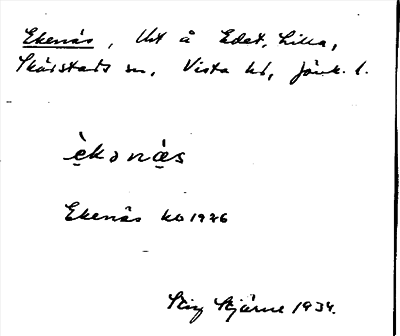 Ekenäs, Ut å Edet, Lilla,
Skärstads sn, Vista hd, Jönk. l.
èkənä̀s
Ekenäs kb 1976
Stig Stjärne 1934.